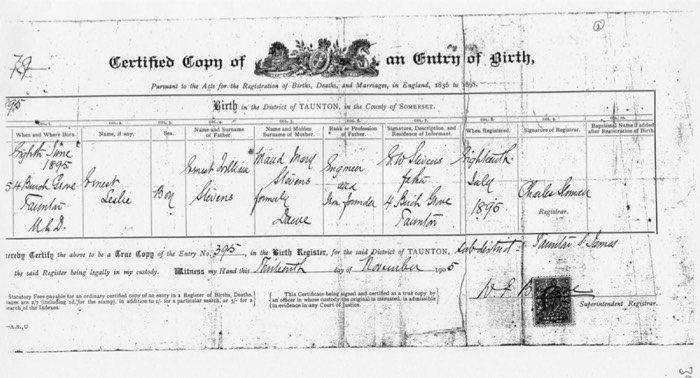 79
Certified Copy of an Entry of Birth,
Pursuant to the Acts for the Registration of Births, Deaths, and Marriages, in England, 1836 to 1898.
Birth in the District of TAUNTON, in the County of SOMERSET.
When and Where Born. Name, if any. Sex. Name and Surname of Father. Name and Maiden Surname of Mother. Rank or Profession of Father. Signature, Description, and Residence of Informant. When Registered. Signature of Registrar. Baptismal Name if added after Registration of Birth
Eighth June 1895 4 Birch Grove Taunton
Ernest Leslie
Boy
Ernest William Stevens
Maud Mary Stevens formerly Dawe
Engineer and Iron founder
E W Stevens father 4 Birch Grove Taunton
Eighteenth July 1895
Charles Registrar.
hereby Certify the above to be a True Copy of the Entry No. 395, in the Birth Register, for the said District of TAUNTON, Sub-district: Taunton St James
the said Register being legally in my custody. Witness my Hand this Thirteenth day of November 1905
Superintendent Registrar.
Statutory Fees payable for an ordinary certified copy of an entry in a Register of Births, Deaths,
search of the Indexes.
This Certificate being signed and certified as a true copy by
an officer in whose custody the original is intrusted, is admissible
in evidence in any Court of Justice.